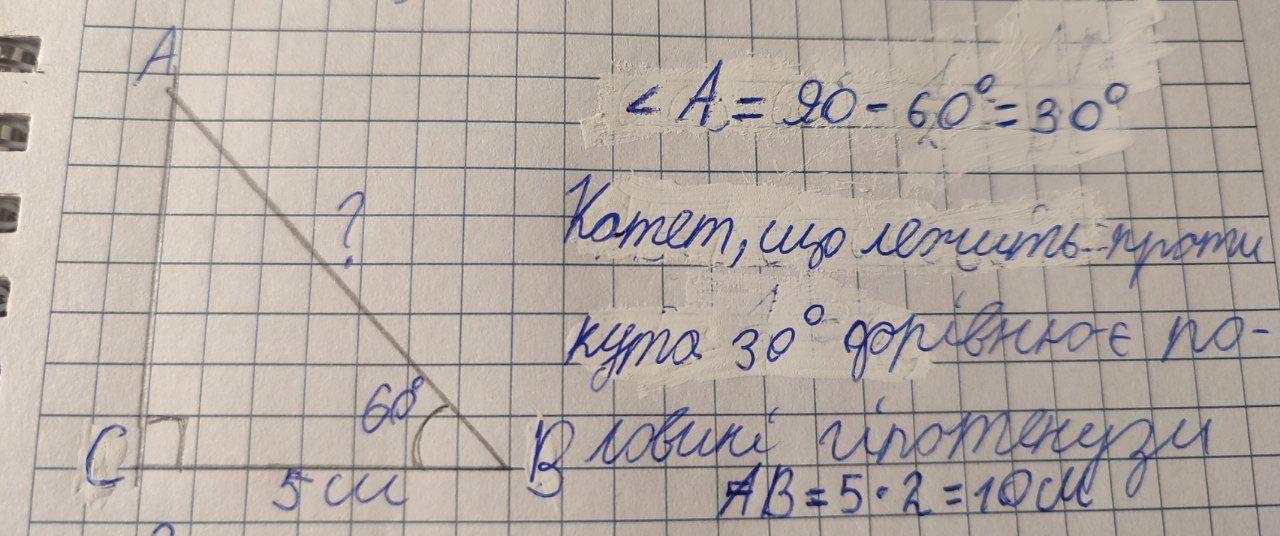 A
?
60°
C
B
5 см
< A = 90 - 60° = 30°
Катет, що лежить проти
кута 30° дорівнює по-
ловині гіпотенузи
AB = 5 · 2 = 10 см